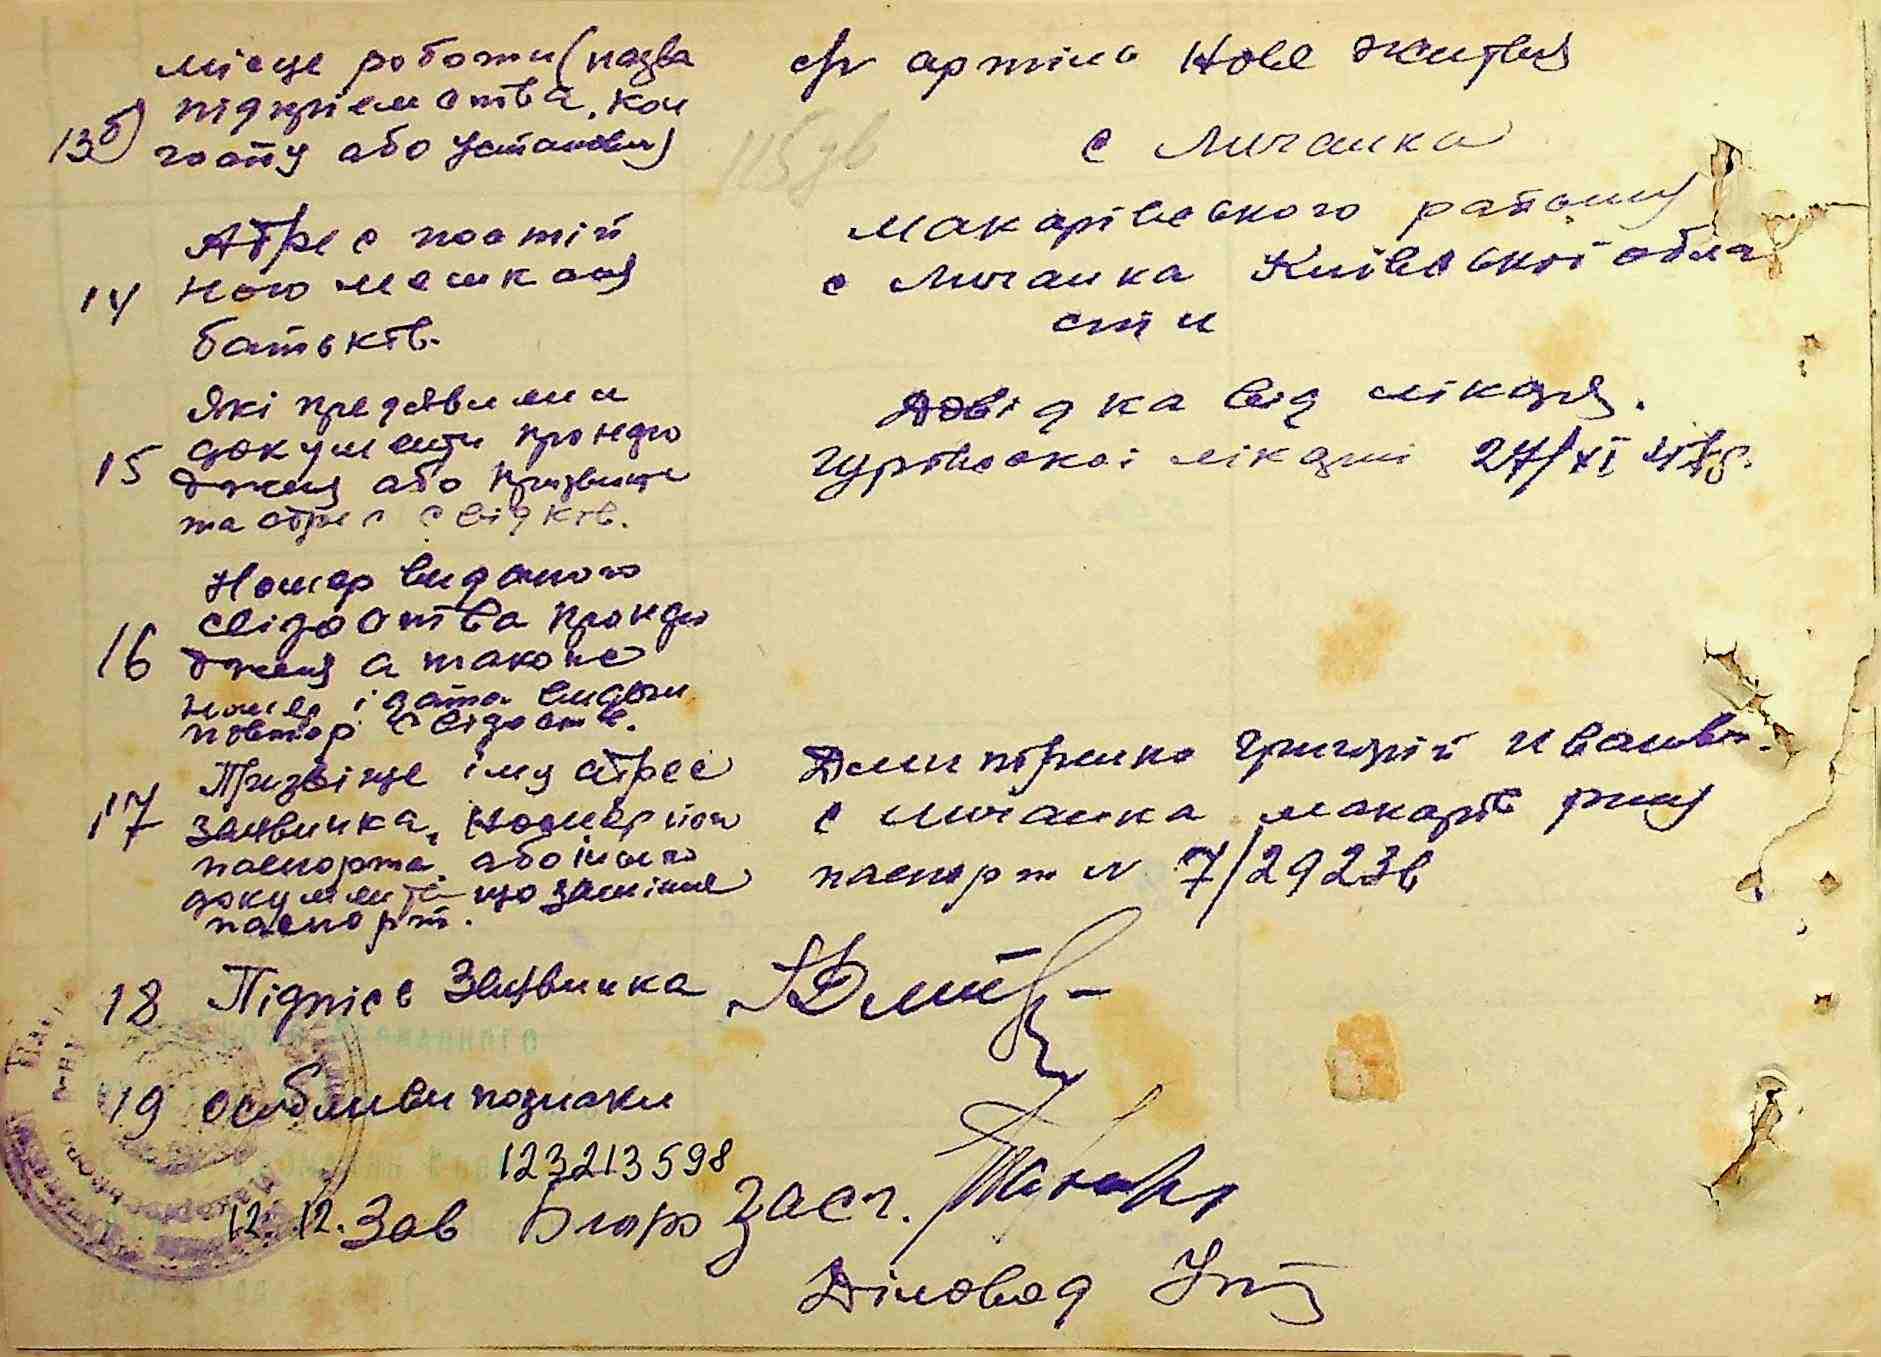 місце роботи (назва
підприємства, кол
13б) госпу або установи)
с/г артіль Нове життя
с Личанка
Адрес постій
14 ного мешканя
батьків.
макарівського району
с Личанка Київської облас
сти
Які предявлили
документи про наро
15 дженя або призвище
та адрес свідків.
Довідка від лікаря.
лікарні 27/XI 47р.
Номер виданого
свідоства про наро
16 дженя а також
номер і дата видачи
повтор свідоств.
Призвіще імя адрес
17 заявника, номер його
паспорта або іншого
документа що замінює
паспорт.
Дмитренко Григорій Иванов.
с Личанка макарів рну
паспорт № 7/29236
18 Підпісь Заявника
19 особливи познаки
123213598
12. 12. Зав Бюро Загс.
Діловод